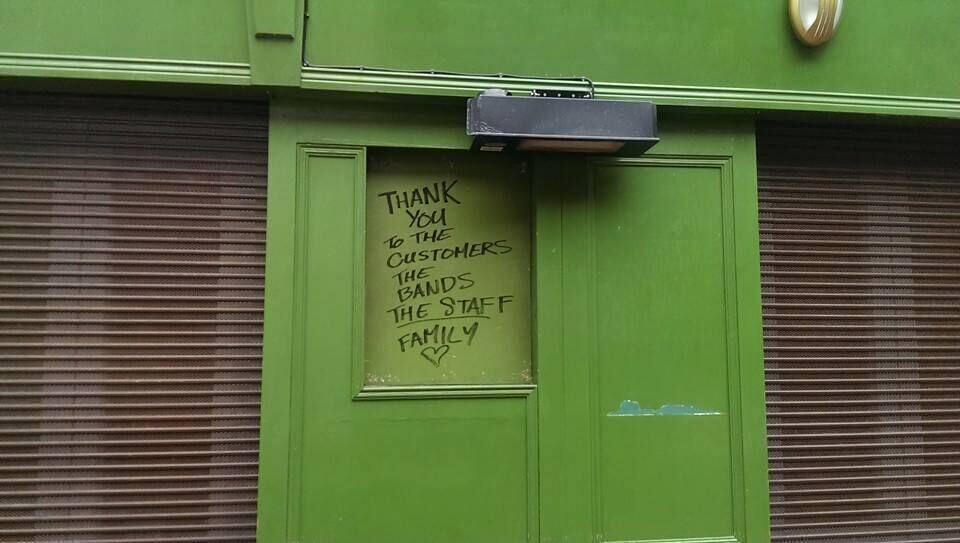 THANK
YOU
TO THE
CUSTOMERS
THE
BANDS
THE STAFF
FAMILY
♡